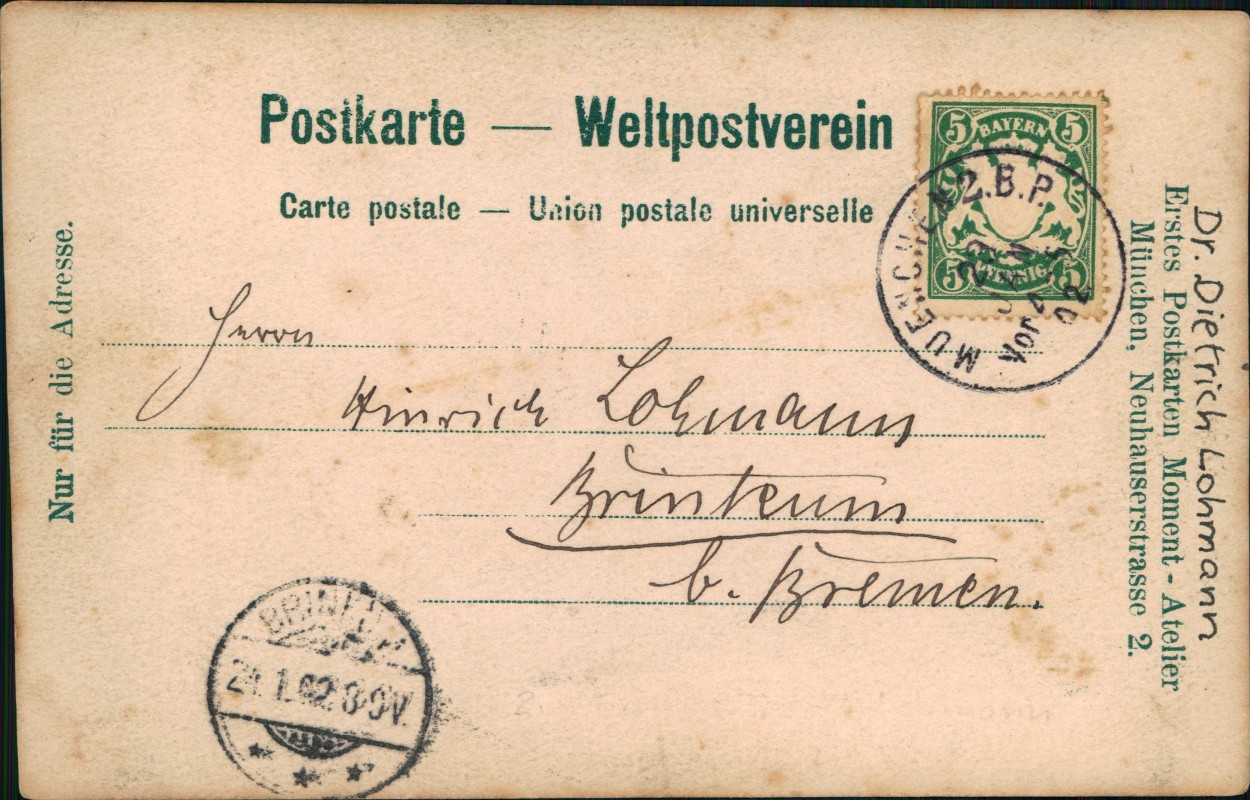 Postkarte — Weltpostverein
Carte postale — Union postale universelle
5 BAYERN 5
5 PFENNIG 5
MUENCHEN 2.B.P.
JAN
Vor 4-5
02
Nur für die Adresse.
Herrn
Hinrich Lohmann
Brinkum
b. Bremen.
BRINKUM
1.02 8-9V.
Dr. Dietrich Lohmann
Erstes Postkarten Moment-Atelier
München, Neuhauserstrasse 2.